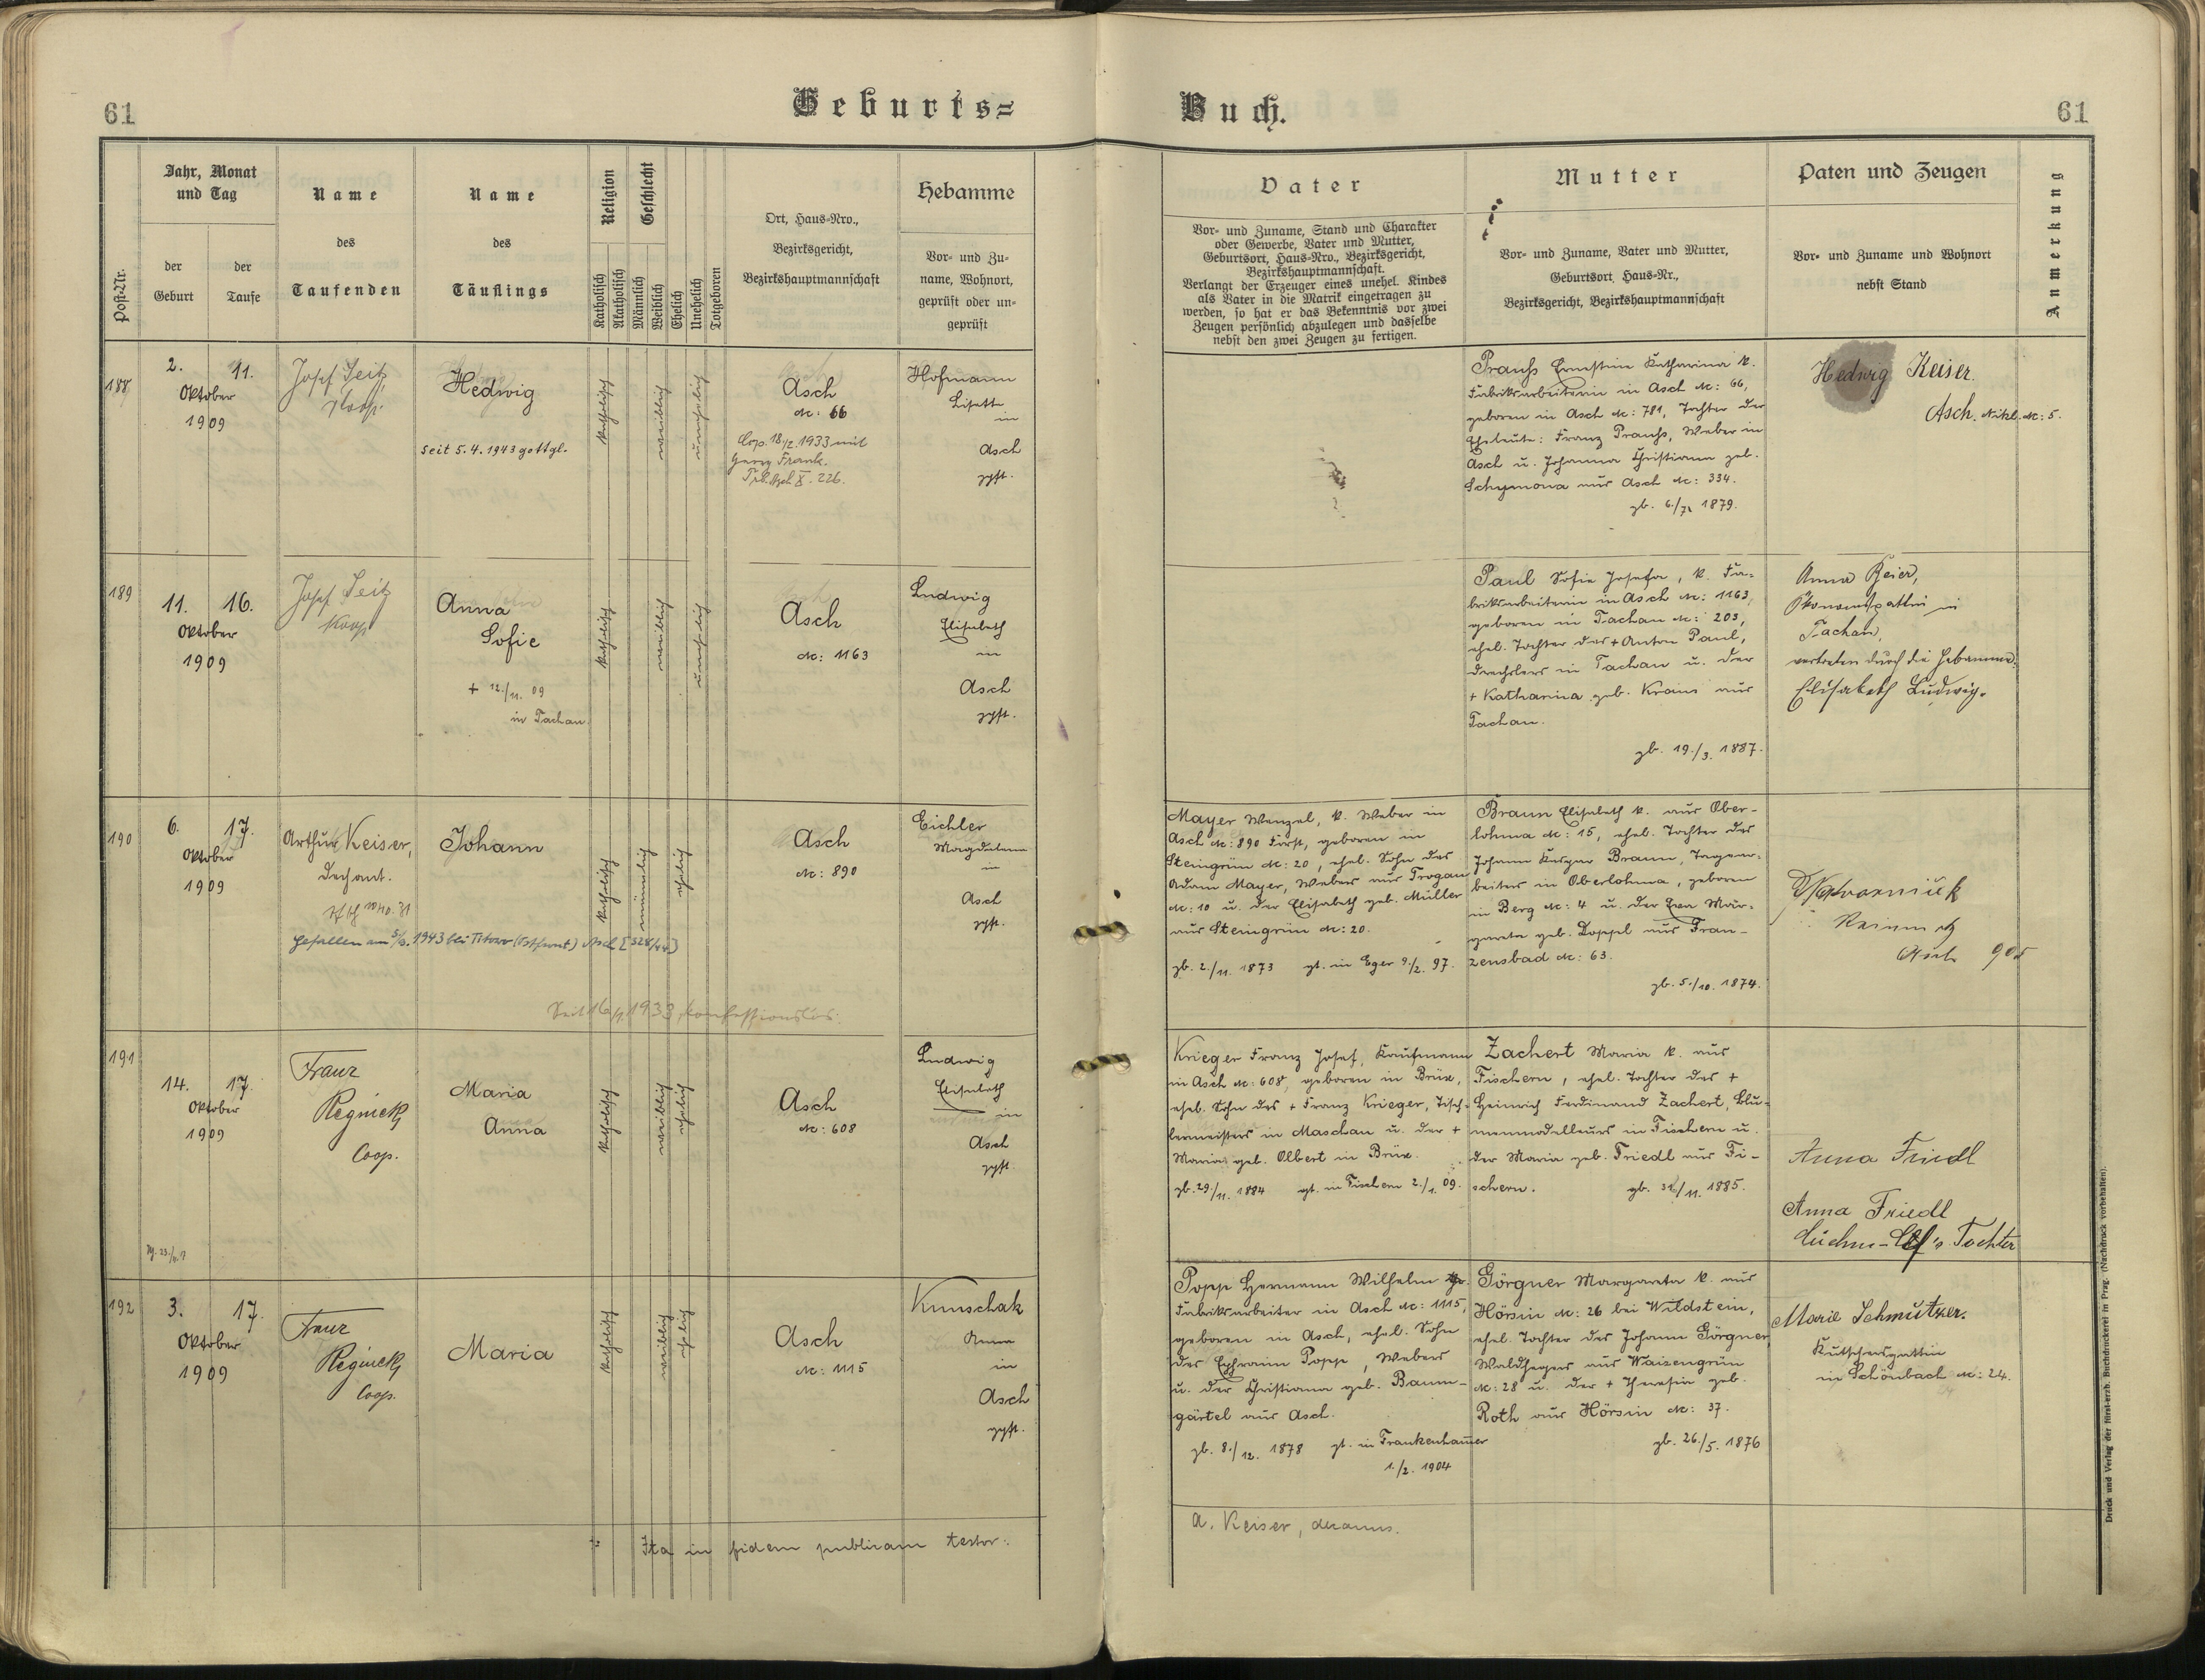 61
Geburts=
Buch.
61
Post-Nr.
Jahr, Monat
und Tag
der
Geburt
der
Taufe
Name
des
Taufenden
Name
des
Täuflings
Religion
Katholisch
Akatholisch
Geschlecht
Männlich
Weiblich
Ehelich
Unehelich
Totgeboren
Ort, Haus-Nro.,
Bezirksgericht,
Bezirkshauptmannschaft
Hebamme
Vor- und Zu-
name, Wohnort,
geprüft oder un-
geprüft
Vater
Vor- und Zuname, Stand und Charakter
oder Gewerbe, Vater und Mutter,
Geburtsort, Haus-Nro., Bezirksgericht,
Bezirkshauptmannschaft.
Verlangt der Erzeuger eines unehel. Kindes
als Vater in die Matrik eingetragen zu
werden, so hat er das Bekenntnis vor zwei
Zeugen persönlich abzulegen und dasselbe
nebst den zwei Zeugen zu fertigen.
Mutter
Vor- und Zuname, Vater und Mutter,
Geburtsort, Haus-Nr.,
Bezirksgericht, Bezirkshauptmannschaft
Paten und Zeugen
Vor- und Zuname und Wohnort
nebst Stand
Anmerkung
188
2. 11.
Oktober
1909
Josef Seitz
Koop.
Hedwig
seit 5.4.1943 gottgl.
katholisch
weiblich
unehelich
Asch
No: 66
Cop. 18/2. 1933 mit
Georg Frank.
X. 226.
Hofmann
Lisette
in
Asch
gpft.
Ernestine Katharina k.
Fabriksarbeiterin in Asch No: 66,
geboren in Asch No: 781, Tochter der
Eheleute: Franz Weber in
Asch u. Johanna Christiana geb.
Schymona aus Asch No: 334.
gb. 6./7. 1879.
Hedwig Keiser.
Asch. Nikl. No: 5.
189
11. 16.
Oktober
1909
Josef Seitz
Koop
Anna
Sofie
+ 12./11. 09
in Tachau.
katholisch
weiblich
unehelich
Asch
No: 1163
Ludwig
Elisabeth
in
Asch
gpft.
Paul Sofie Josefa, k. Fa-
briksarbeiterin in Asch No: 1163,
geboren in Tachau No: 203,
ehel. Tochter des + Anton Paul,
Drechslers in Tachau u. der
+ Katharina geb. Kraus aus
Tachau.
gb. 19./3. 1887.
Anna Beier,
Ökonomsgattin in
Tachau,
vertreten durch die Hebamme:
Elisabeth Ludwig.
190
6. 17.
Oktober
1909
Arthur Keiser,
Dechant.
Gefallen am 5/3. 1943 bei Titowo (Ostfront) Asch [328/44]
Johann
katholisch
männlich
ehelich
Asch
No: 890
Eichler
Magdalena
in
Asch
gpft.
Mayer Wenzel, k. Weber in
Asch No: 890 Forst, geboren in
Steingrün No: 20, ehel. Sohn des
Adam Mayer, Webers aus Trogau
No: 10 u. der Elisabeth geb. Müller
aus Steingrün No: 20.
gb. 2./11. 1873 gt. in Eger 9./2. 97.
Braun Elisabeth k. aus Ober-
lohma No: 15, ehel. Tochter des
Johann Kaspar Braun, Tagear-
beiters in Oberlohma, geboren
in Berg No: 4 u. der Eva Mar-
gareta geb. Doppl aus Fran-
zensbad No: 63.
gb. 5./10. 1874.
Asch 905
Seit 16/1. 1933 konfessionslos.
191
14. 17.
Oktober
1909
Franz
Regnick
Coop.
Maria
Anna
katholisch
weiblich
ehelich
Asch
No: 608
Ludwig
Elisabeth
in
Asch
gpft.
Krieger Franz Josef, Kaufmann
in Asch No: 608, geboren in Brüx,
ehel. Sohn des + Franz Krieger, Tisch-
lermeisters in Maschau u. der +
Maria geb. Olbert in Brüx.
gb. 29./11. 1884 gt. in Fischern 2./1. 09.
Zachert Maria k. aus
Fischern, ehel. Tochter des +
Heinrich Ferdinand Zachert, Blu-
menmodelleurs in Fischern u.
der Maria geb. Friedl aus Fi-
schern. gb. /11. 1885.
Anna Friedl
Anna Friedl
Tochter
192
3. 17.
Oktober
1909
Franz
Regnick
Coop.
Maria
katholisch
weiblich
ehelich
Asch
No: 1115
Kunschak
Anna
in
Asch
gpft.
Popp Hermann Wilhelm
Fabriksarbeiter in Asch No: 1115,
geboren in Asch, ehel. Sohn
des Ephraim Popp, Webers
u. der Christiana geb. Baum-
gärtel aus Asch.
gb. 8./12. 1878 gt. in Frankenhammer
1./2. 1904
Görgner Margareta k. aus
Hörsin No: 26 bei Wildstein,
ehel. Tochter des Johann Görgner,
Waldhegers aus Waizengrün
No: 28 u. der + Theresia geb.
Roth aus Hörsin No: 37.
gb. 26./5. 1876
Marie Schmutzer.
Kutschersgattin
in Schönbach No: 24.
Ita in fidem publicam testor:
A. Keiser, decanus.
Druck und Verlag der fürst-erzb. Buchdruckerei in Prag. (Nachdruck vorbehalten).